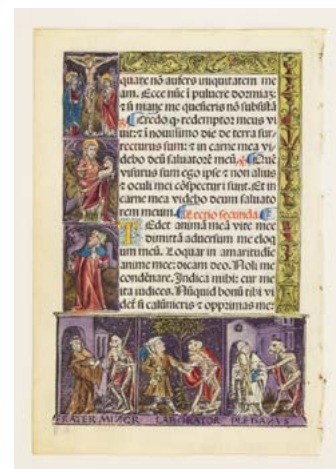 quare nõ aufers iniquitatem me
am. Ecce nũc ĩ puluere dormiaʒ:
⁊ si mane me quesieris nõ subsistã
Credo ꝙ redemptor meus vi
uit: ⁊ ĩ nouissimo die de terra sur-
recturus sum: ⁊ in carne mea vi-
debo deũ saluatorẽ meũ. Quẽ
visurus sum ego ipse ⁊ non alius
⁊ oculi mei cõspecturi sunt. Et in
carne mea videbo deum saluato
rem meum. Lectio secunda.
Tedet animã meã vite mee
dimittã aduersum me eloq
um meũ. Loquar in amaritudie
anime mee: dicam deo. Noli me
condẽnare. Indica mihi: cur me
ita iudices. Nũquid bonũ tibi vi
det̃ si calũnieris ⁊ opprimas me:
FRATER MINOR LABORATOR PLEBANVS